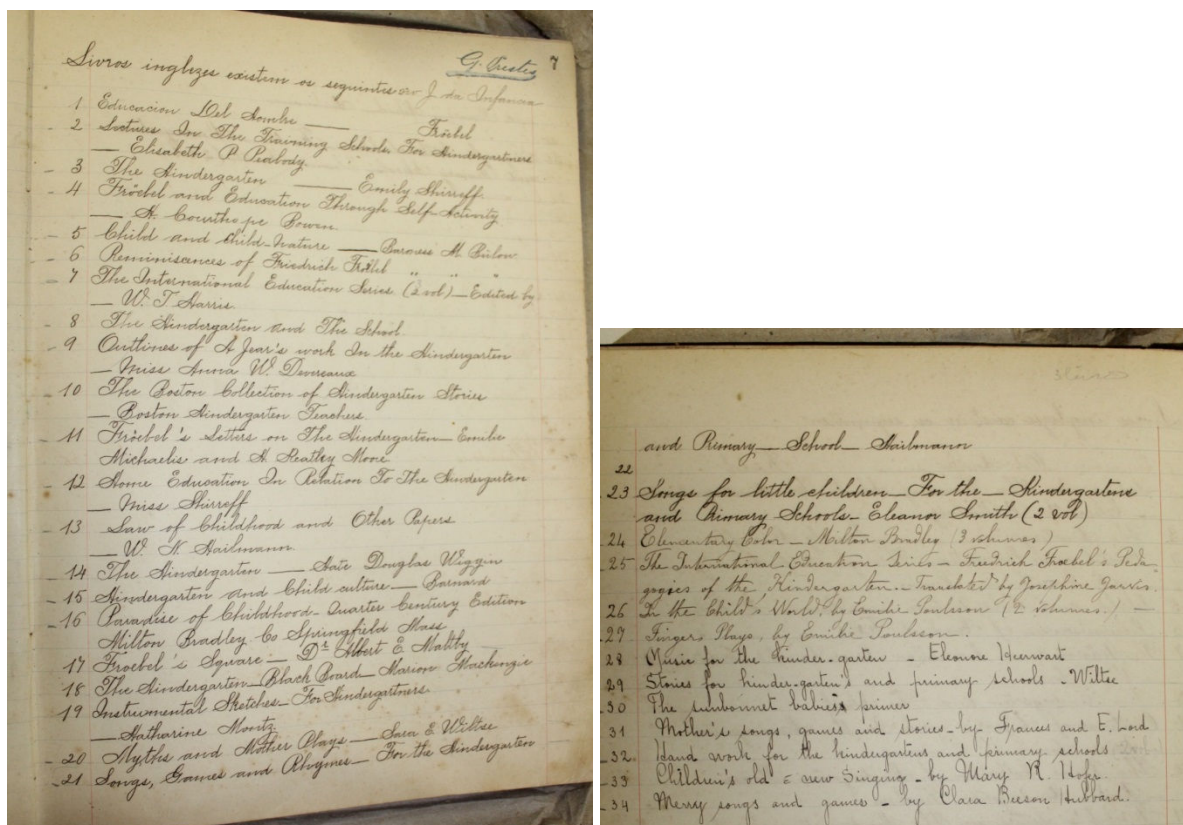 G. Prestes 7
Livros inglezes existem os seguintes no J. da Infancia
1 Educacion Del Hombre — Fröebel
2 Lectures In The Training Schools For Kindergartners
— Elisabeth P. Peabody.
3 The Kindergarten — Emily Shirreff.
4 Fröebel and Education Through Self-Activity
— H. Courthope Bowen.
5 Child and Child-Nature — Baroness M. Bülow
6 Reminisances of Friedrich Fröbel " " "
7 The International Education Series (2 vol) — Edited by
— W. T Harris.
8 The Kindergarten and The School.
9 Outlines of A Year's work In the Kindergarten
— Miss Anna W. Devereaux
10 The Boston Collection of Kindergarten Stories
— Boston Kindergarten Teachers.
11 Fröebel's Letters on The Kindergarten — Emilie
Michaelis and H. Keatley Moore
12 Home Education In Relation To The Kindergarten
— Miss Shirreff
13 Law of Childhood and Other Papers
— W. N. Hailmann.
14 The Kindergarten — Kate Douglas Wiggin
15 Kindergarten and Child culture — Barnard
16 Paradise of Childhood — Quarter Century Edition
Milton Bradley Co Springfield Mass
17 Froebel's Square — Dr Albert E. Maltby
18 The Kindergarten — Black Board — Marion Mackenzie
19 Instrumental Sketches — For Kindergartners
— Katharine Montz
20 Myths and Mother Plays — Sara E. Wiltse
21 Songs, Games and Rhymes — For the Kindergarten
and Primary — School — Hailmann
22
23 Songs for little children — For the — Kindergartens
and Primary Schools — Eleanor Smith (2 vol)
24 Elementary Color — Milton Bradley (3 volumes)
25 The International Education Series — Friedrich Froebel's Peda-
gogics of the Kindergarten. Translated by Josephine Jarvis.
26 In the Child's World, by Emilie Poulsson (2 volumes.) —
27 Fingers Plays, by Emilie Poulsson.
28 Music for the kinder-garten - Eleonore Heerwart
29 Stories for kinder-garten's and primary schools - Wiltse
30 The sunbonnet babies's primer
31 Mother's songs, games and stories - by Frances and E. Lord
32 Hand work for the kindergartens and primary schools
33 Children's old & new Singing - by Mary R. Hofer.
34 Merry songs and games - by Clara Beeson Hubbard.